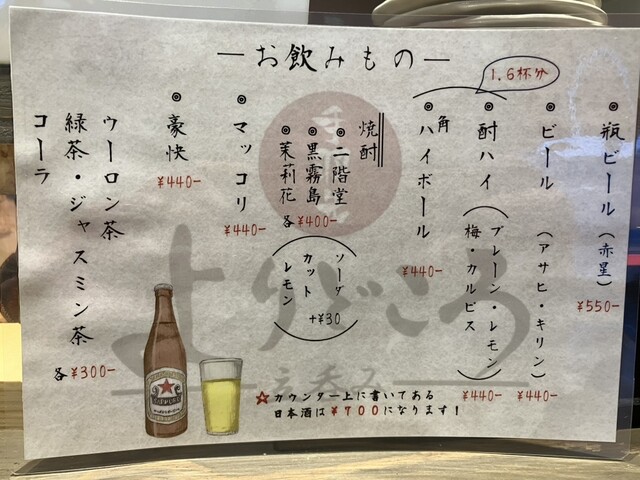 ―お飲みもの―
1.6杯分
◎瓶ビール(赤星)
¥550-
◎ビール(アサヒ・キリン)
¥440-
◎酎ハイ(プレーン・レモン
梅・カルピス)
¥440-
◎角ハイボール
¥440-
焼酎
◎二階堂
◎黒霧島
◎茉莉花
各¥400-
(ソーダ
カット
レモン)
+¥30
◎マッコリ
¥440-
◎豪快
¥440-
ウーロン茶
緑茶・ジャスミン茶
コーラ
各¥300-
☆カウンター上に書いてある
日本酒は¥700になります!
どころ
立呑み
SAPPORO